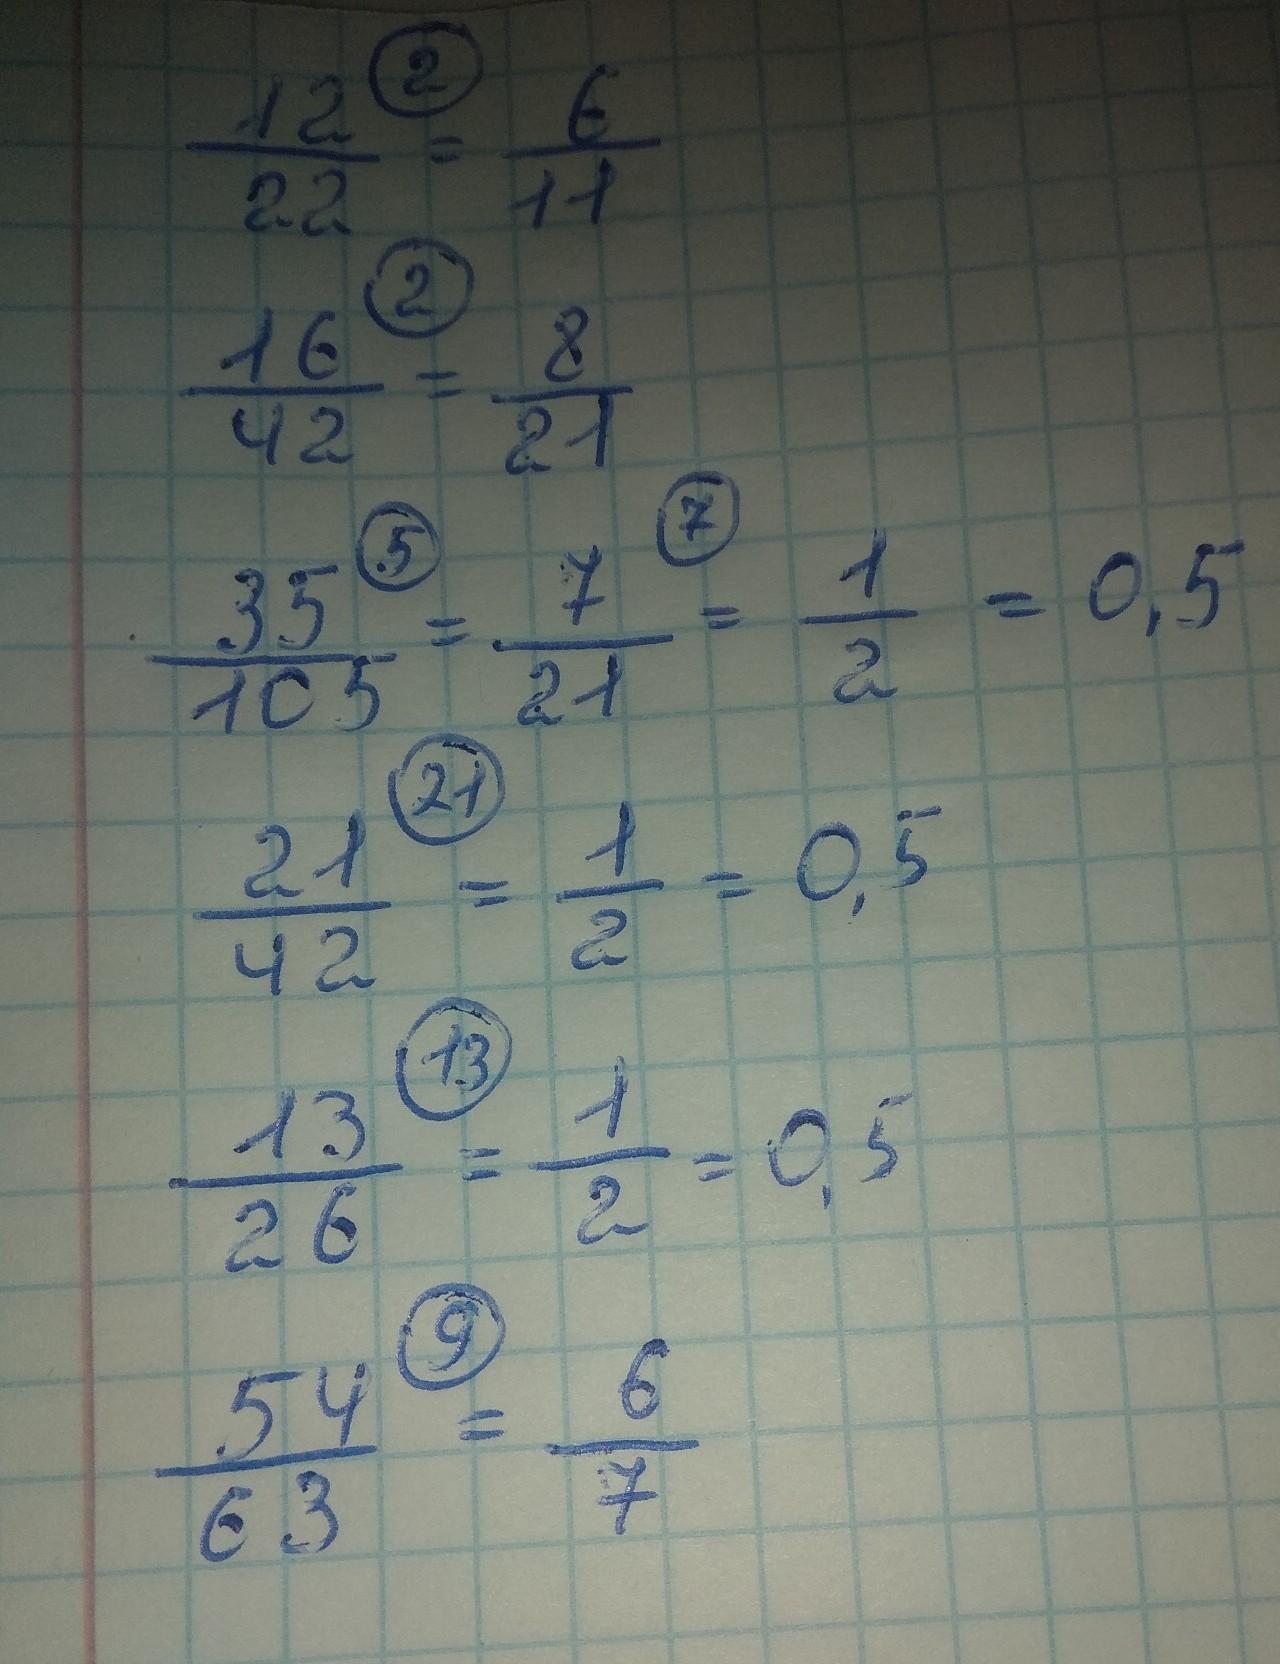 12/22 ② = 6/11
16/42 ② = 8/21
35/105 ⑤ = 7/21 ⑦ = 1/2 = 0,5
21/42 ㉑ = 1/2 = 0,5
13/26 ⑬ = 1/2 = 0,5
54/63 ⑨ = 6/7